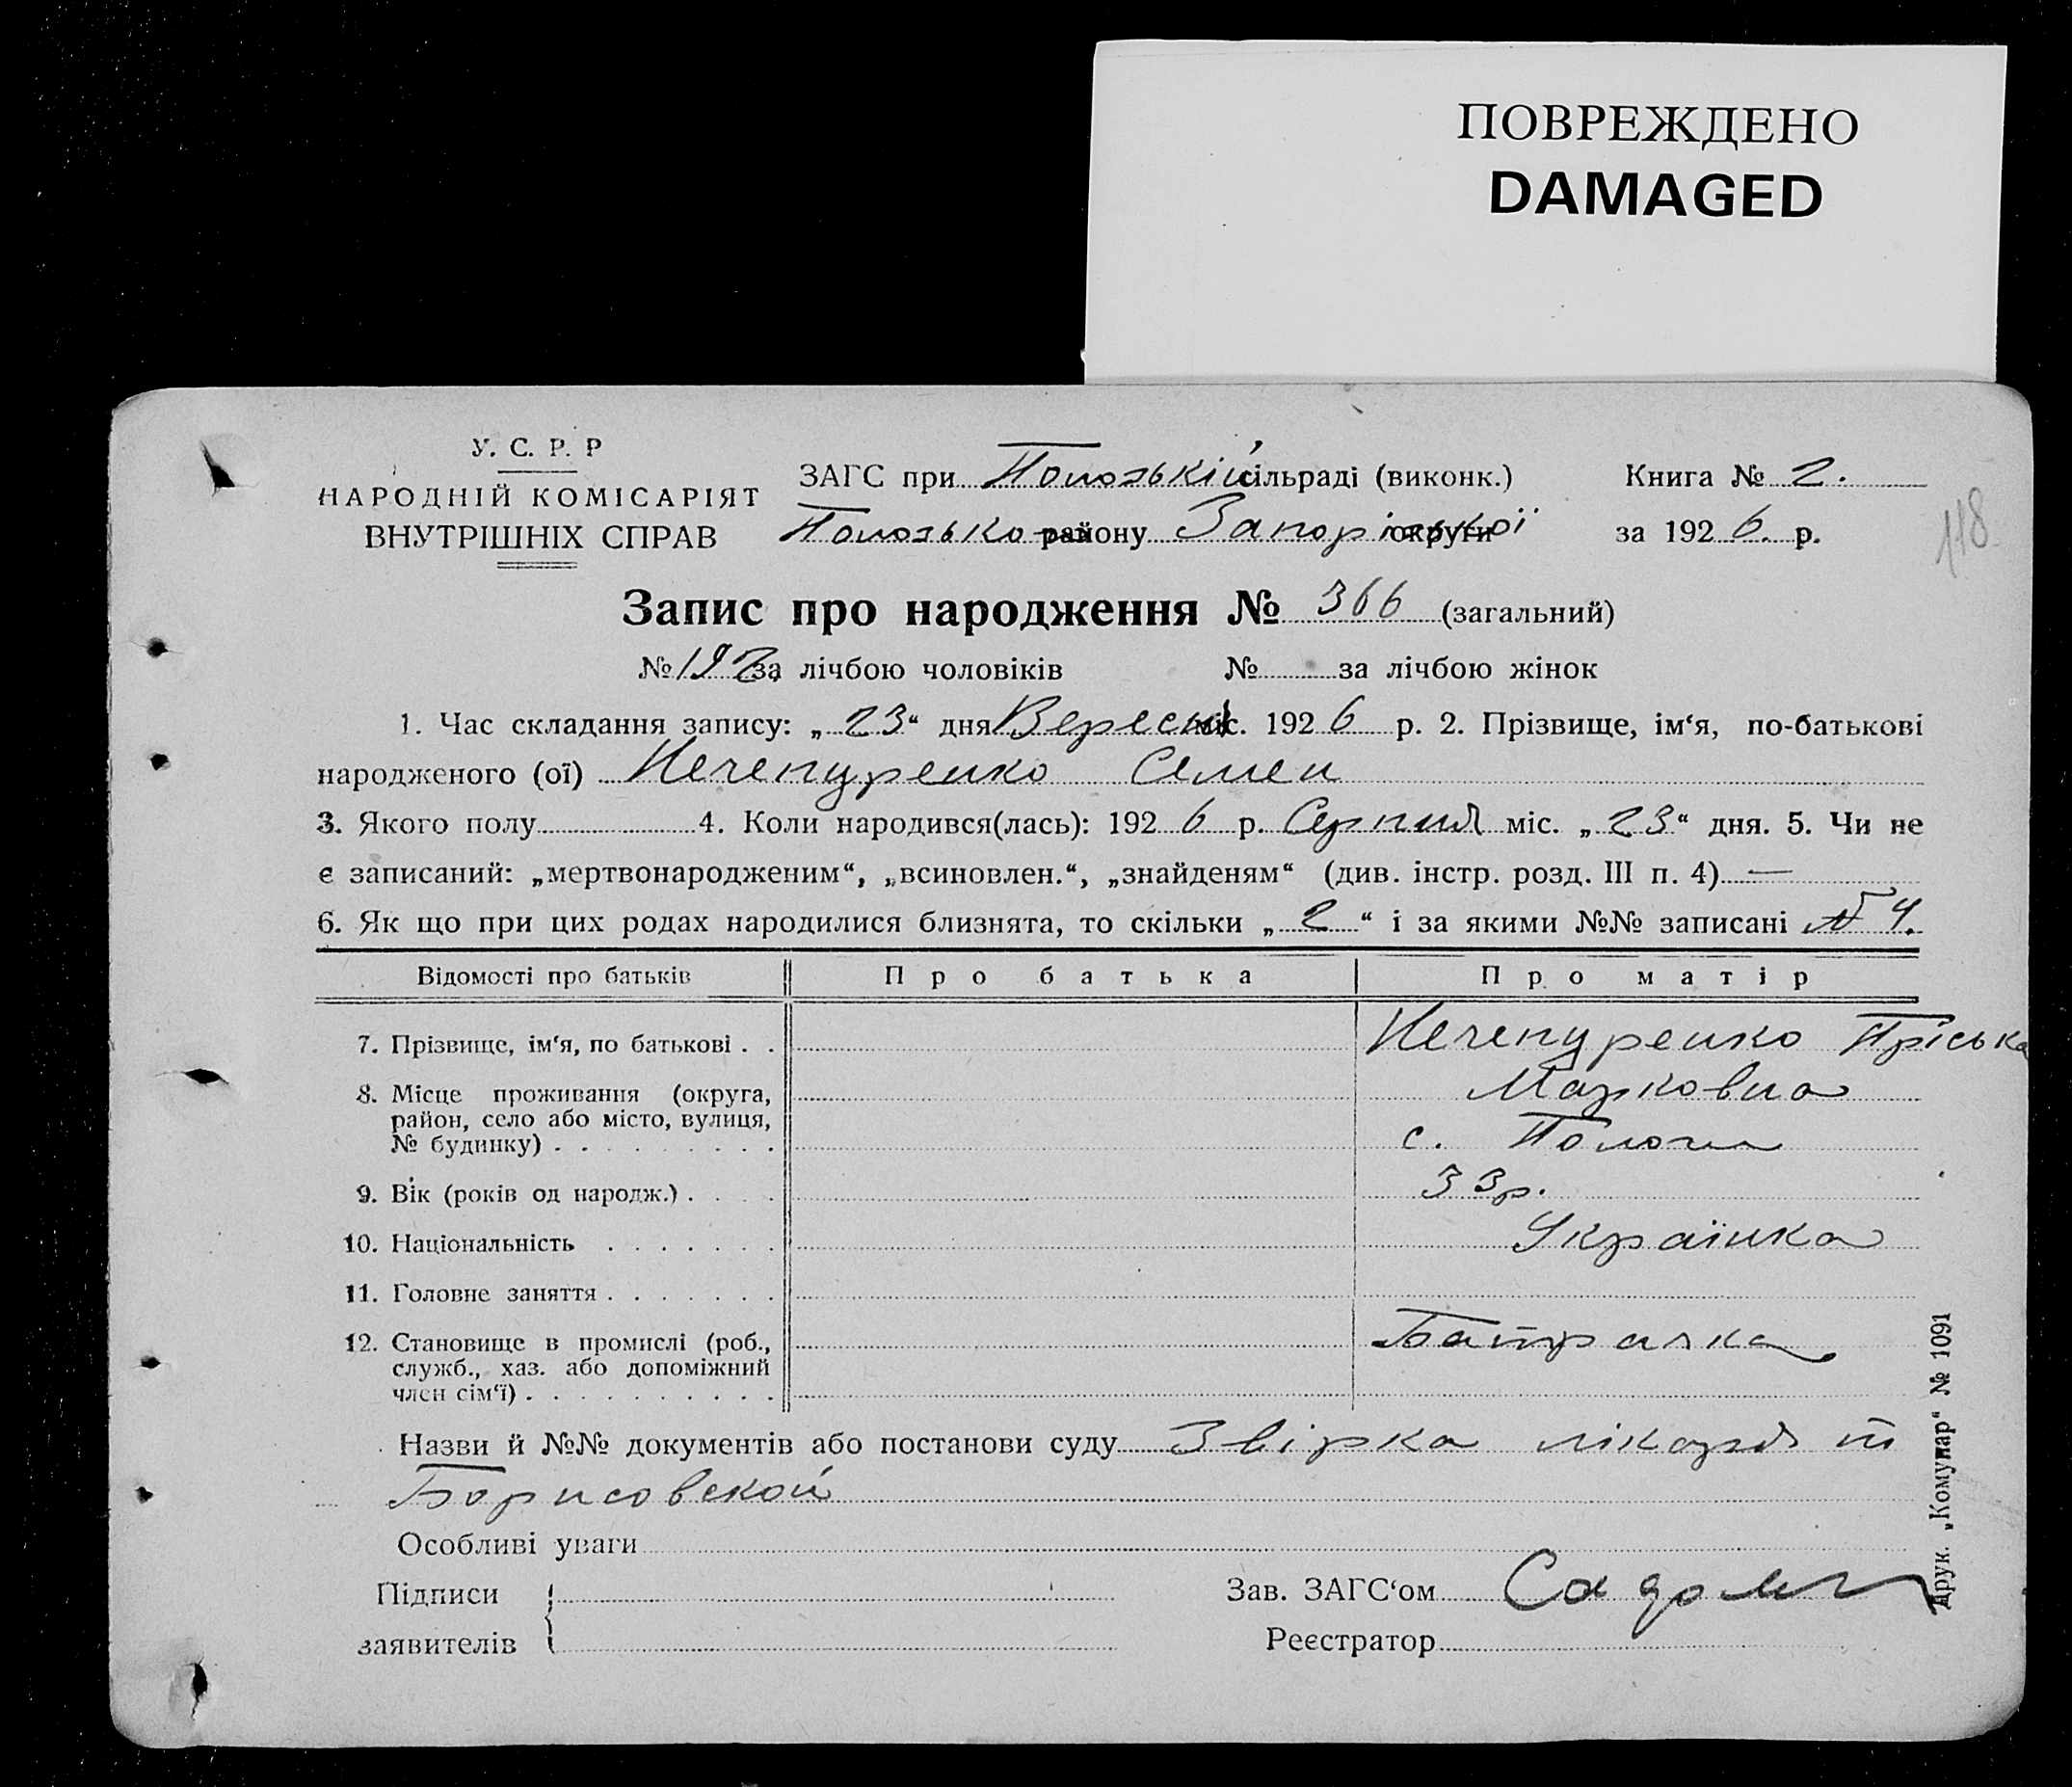 ПОВРЕЖДЕНО
DAMAGED
У. С. Р. Р
НАРОДНІЙ КОМІСАРІЯТ
ВНУТРІШНІХ СПРАВ
ЗАГС при Пологській сільраді (виконк.)
Книга № 2.
Пологсько району Запорізької округи
за 1926. р.
118
Запис про народження № 366 (загальний)
№ 192 за лічбою чоловіків № за лічбою жінок
1. Час складання запису: „23“ дня Вересня міс. 1926 р. 2. Прізвище, ім‘я, по-батькові
народженого (ої) Нечепуренко Семен
3. Якого полу 4. Коли народився(лась): 1926 р. Серпня міс. „23“ дня. 5. Чи не
є записаний: „мертвонародженим“, „всиновлен.“, „знайденям“ (див. інстр. розд. III п. 4) —
6. Як що при цих родах народилися близнята, то скільки „2“ і за якими №№ записані
Відомості про батьків Про батька Про матір
7. Прізвище, ім‘я, по батькові . . Нечепуренко Пріська
8. Місце проживання (округа, Марковна
район, село або місто, вулиця,
№ будинку) . . . . . . . . . с. Пологи
9. Вік (років од народж.) . . . . 33 р.
10. Національність . . . . . . . Українка
11. Головне заняття . . . . . . .
12. Становище в промислі (роб., Батрачка
служб., хаз. або допоміжний
член сім‘ї) . . . . . . . . . .
Назви й №№ документів або постанови суду Звірка лікаря
Борисовской
Особливі уваги
Підписи
заявителів
Зав. ЗАГС‘ом
Реєстратор
Друк. „Комунар“ № 1091